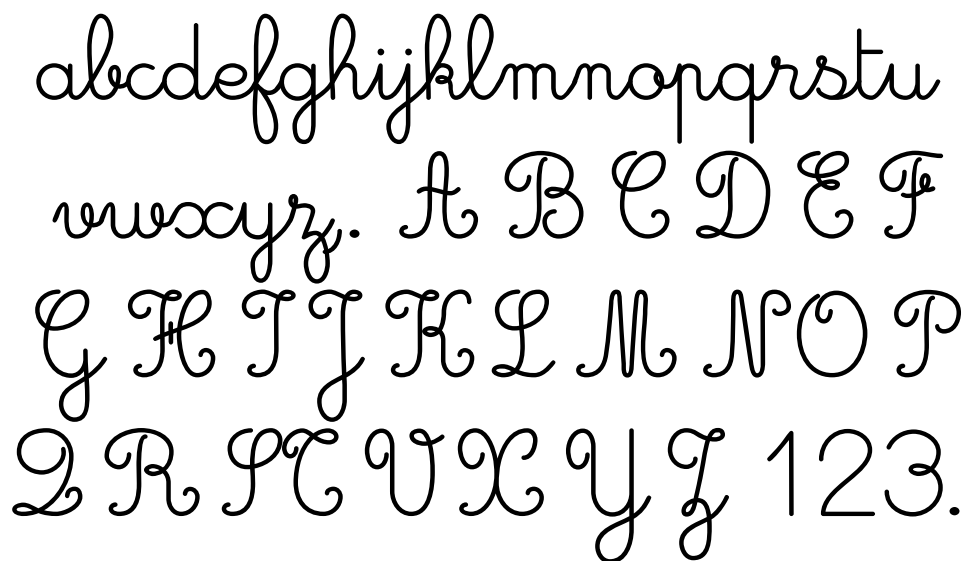 abcdefghijklmnopqrstu
vwxyz. A B C D E F
G H I J K L M N O P
Q R S T V X Y Z 123.